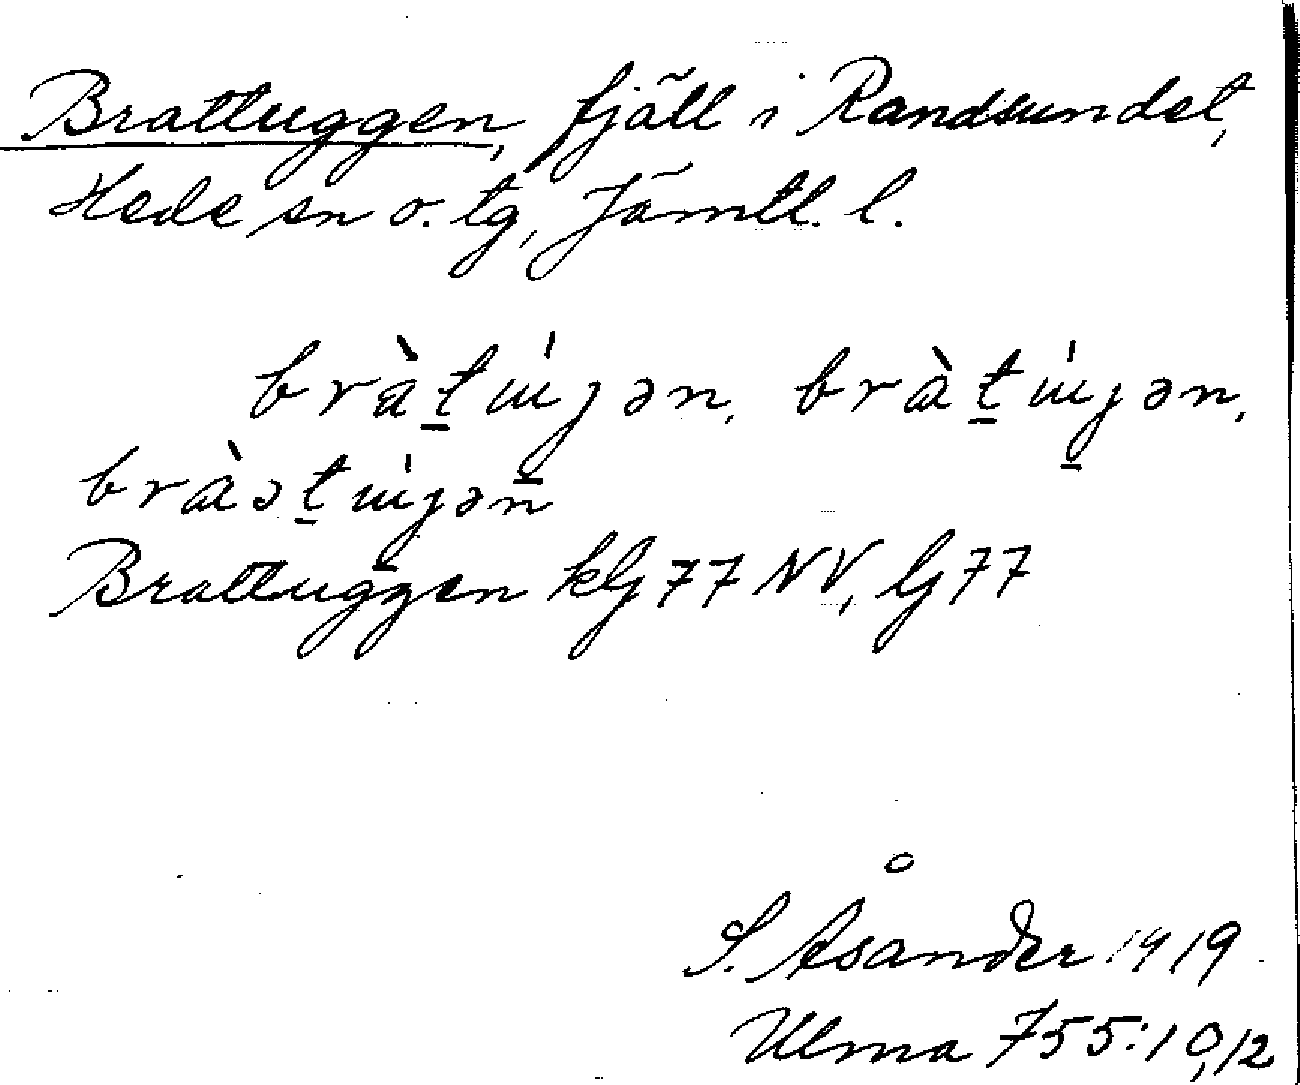 Brattuggen, fjäll i Randsundet,
Hede sn o. tg, Jämtl. l.
bràt̠ɯ́ȷən, bràt̠ɯ́ȷ̠ən,
bràət̠ɯ́ȷ̠ən
Brattuggen kG 77 NV, G 77
S. Åsander 1919
Ulma 755:10,12